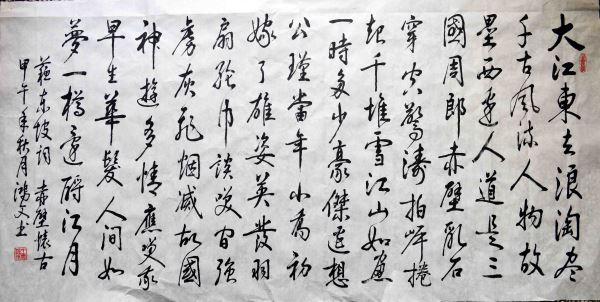 大江東去浪淘尽
千古風流人物故
壘西邊人道是三
國周郎赤壁乱石
穿空驚濤拍岸捲
起千堆雪江山如画
一時多少豪傑遥想
公瑾當年小喬初
嫁了雄姿英發羽
扇綸巾談笑间强
虜灰飛烟滅故國
神遊多情應笑我
早生華髮人间如
夢一樽還酹江月
蘇东坡詞 赤壁懷古
甲午年秋月鴻文书